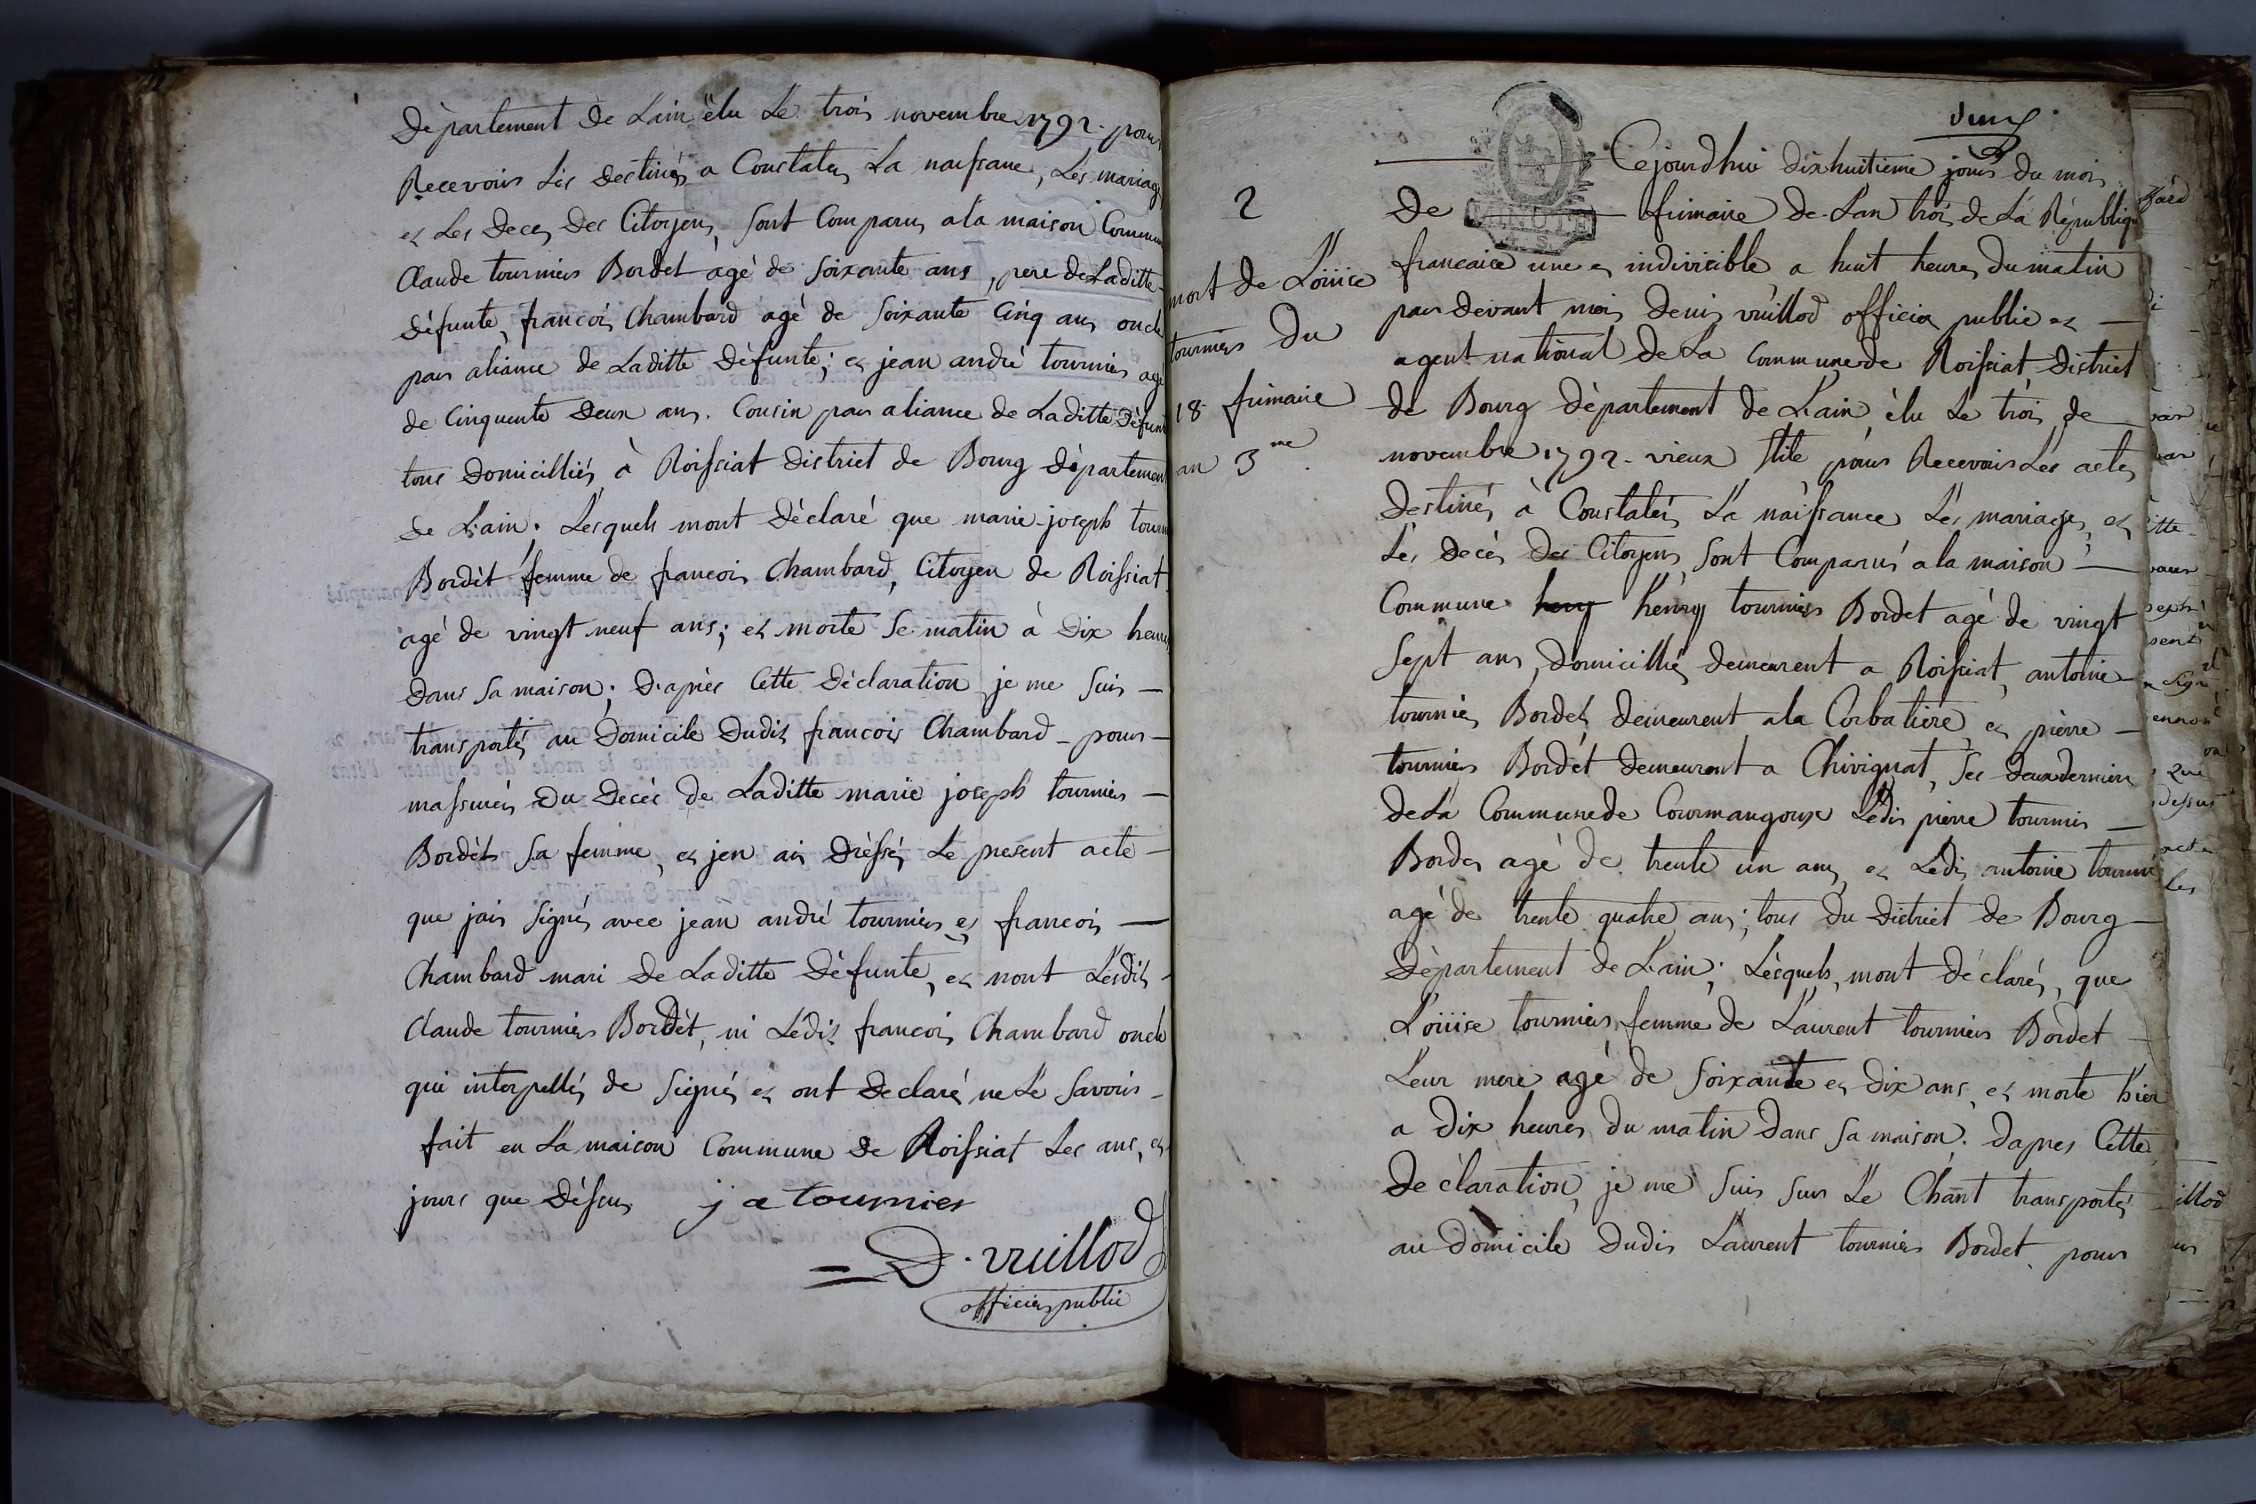 Département de Lain élu Le trois novembre 1792. pour
Recevoir Les destinés a Constater La naissance, Les mariages
et Les Deces Des Citoyens, sont Comparus a la maison Commune
Claude tournier Bordet agé de soixante ans, pere de Laditte
défunte, francois Chambard agé de soixante Cinq ans oncle
par aliance de Laditte Défunte; et jean andré tournier agé
de Cinquente Deux ans. Cousin par aliance de Laditte Défunte
tous Domicilliés à Roissiat District de Bourg Département
de L'ain; Lesquels mont Déclaré que marie-joseph tourn
Bordèt femme de francois Chambard, Citoyen de Roissiat
agé de vingt neuf ans; et morte se matin à Dix heures
Dans sa maison; D'après Cette Déclaration je me suis —
transportés au Domicile Dudit francois Chambard - pour —
massurés Du Decés de Laditte marie joseph tournier —
Bordèt sa femme, et jen ais Drèssés Le present acte —
que jais signés avec jean andré tournier et francois —
Chambard mari De Laditte Défunte, et nont Lesdits -
Claude tournier Bordèt, ni Lédit francois Chambard oncle
qui interpellés de signés et ont Declaré ne Le savoir -
fait en La maison Commune de Roissiat Les ans, et
jours que Déssus j a tournier
D. vuillod
officier public
deux
Cejourdhui dixhuitieme jour du mois
De frimaire de Lan trois de La Républiq
2
mort de Loüice
tournier Du
18 frimaire
an 3me
francaice une et indivicible a huit heures du matin
par devant mois Denis vuillod officier public et —
agent national de La Commune de Roissiat District
de Bourg Département de L'ain, èlu Le trois de
novembre 1792 - vieux stile pour Recevoir Les actes
Destinés à Constatér La naissance Les mariages, et
Lés Decés Des Citoyens, sont Comparus a la maison —
Commune henry henry tournier Bordet agé de vingt
sept ans, Domicilliés demeurent a Roissiat, antoine —
tournier Bordet, demeurent a la Corbatière, et pièrre —
tournier Bordét demeurent a Chivignat, ses deux dernier
de La Commune de Courmangoux Lédit pierre tournier —
Bordet agé de trente un ans, et Lédit antoine tournie
agé de trente quatre ans; tous Du District de Bourg —
Département de L'ain; Lèsquels mont déclarés, que
Loüise tournier, femme de Laurent tournier Bordet -
Leur mere agé de soixante et dix ans, et morte hier
a Dix heures du matin Dans sa maison. Dapres Cette
Déclaration, je me suis sur Le Chant transportés
au Domicile Dudit Laurent tournier Bordet pour